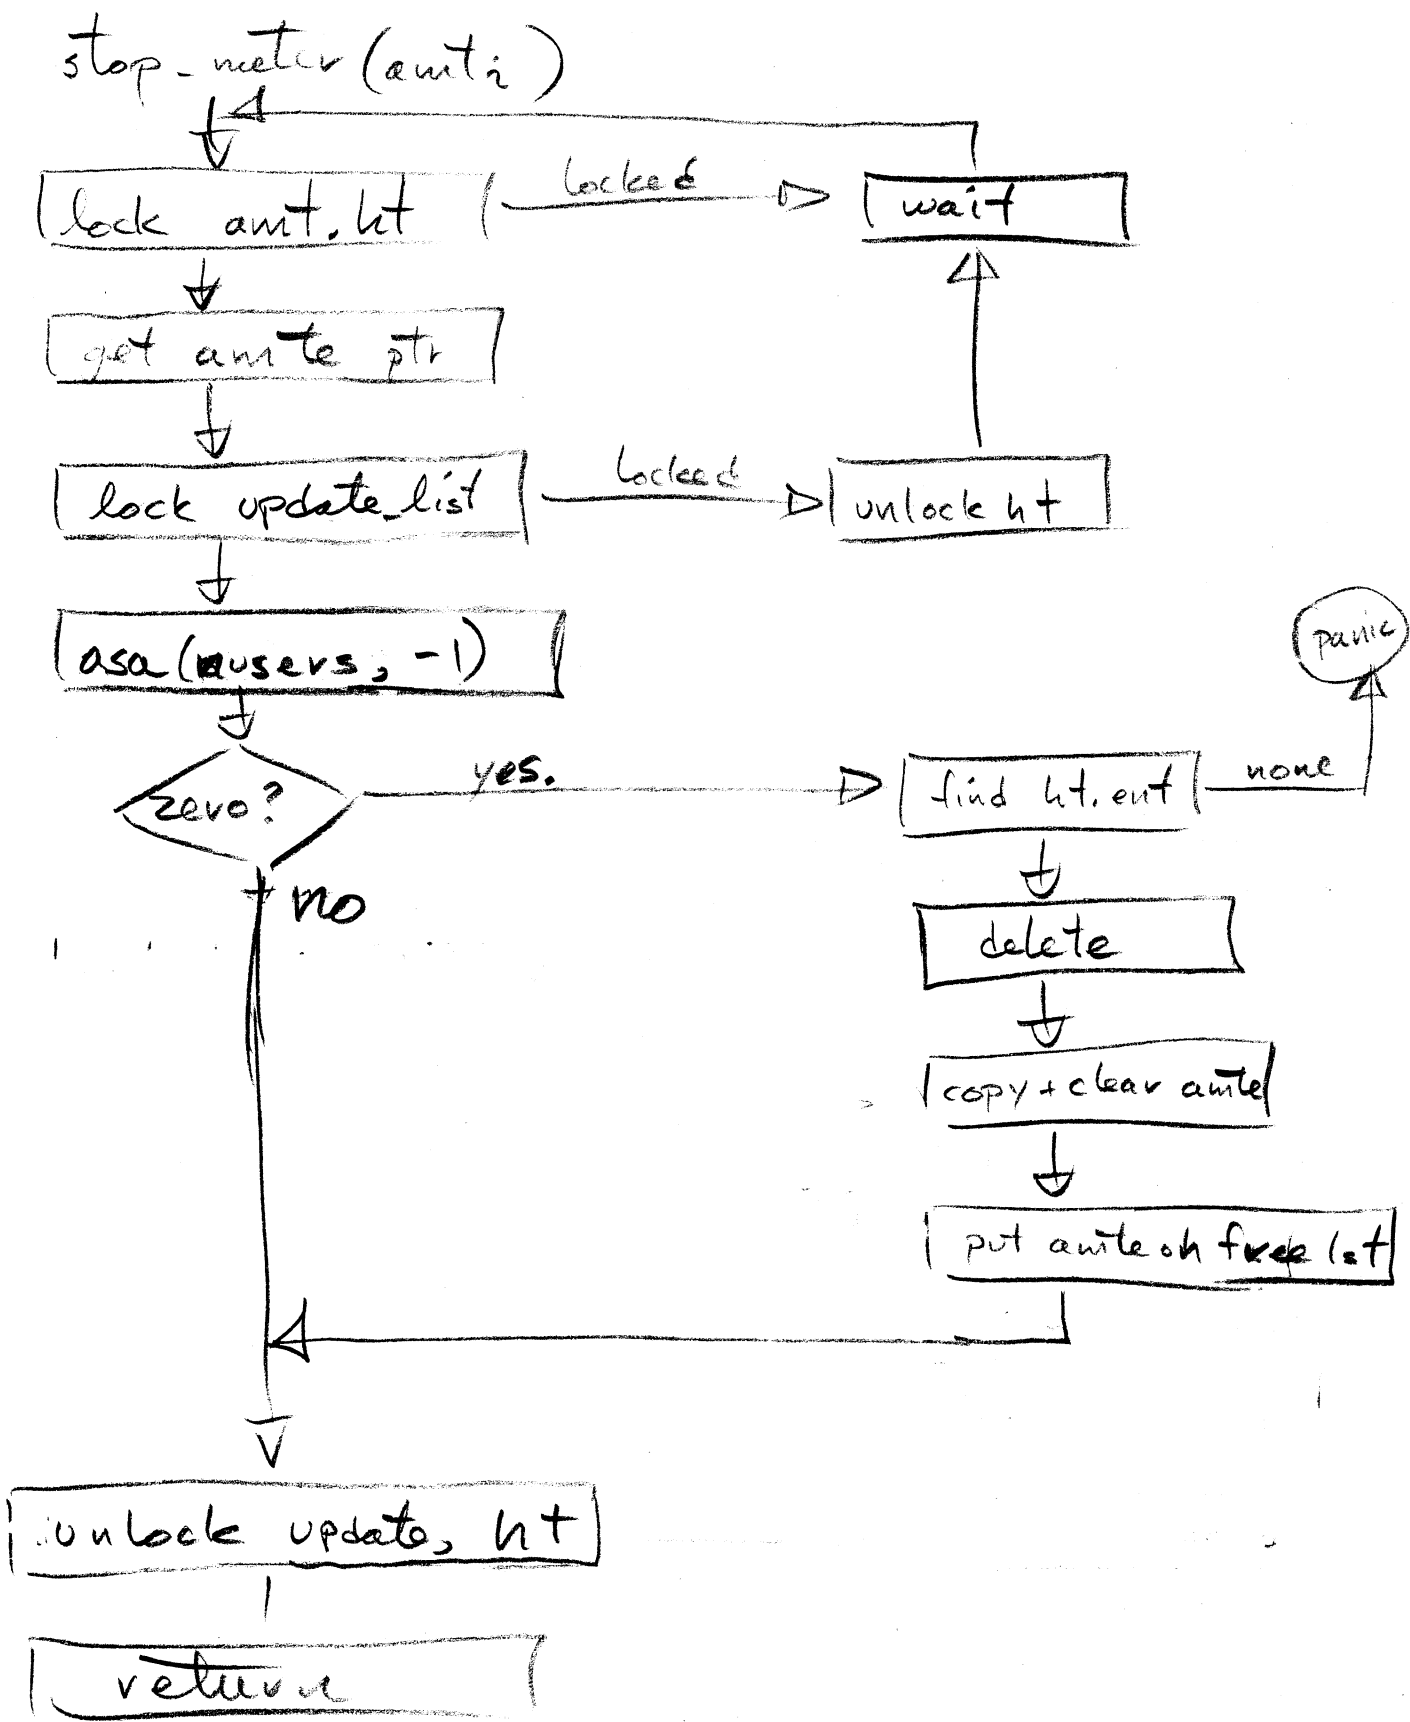 stop_meter (amti)
lock amt.ht
locked
wait
get amte ptr
lock update_list
locked
unlock ht
asa(nusers, -1)
panic
zero?
yes.
find ht.ent
none
no
delete
copy + clear amte
put amte on free lst
unlock update, ht
return